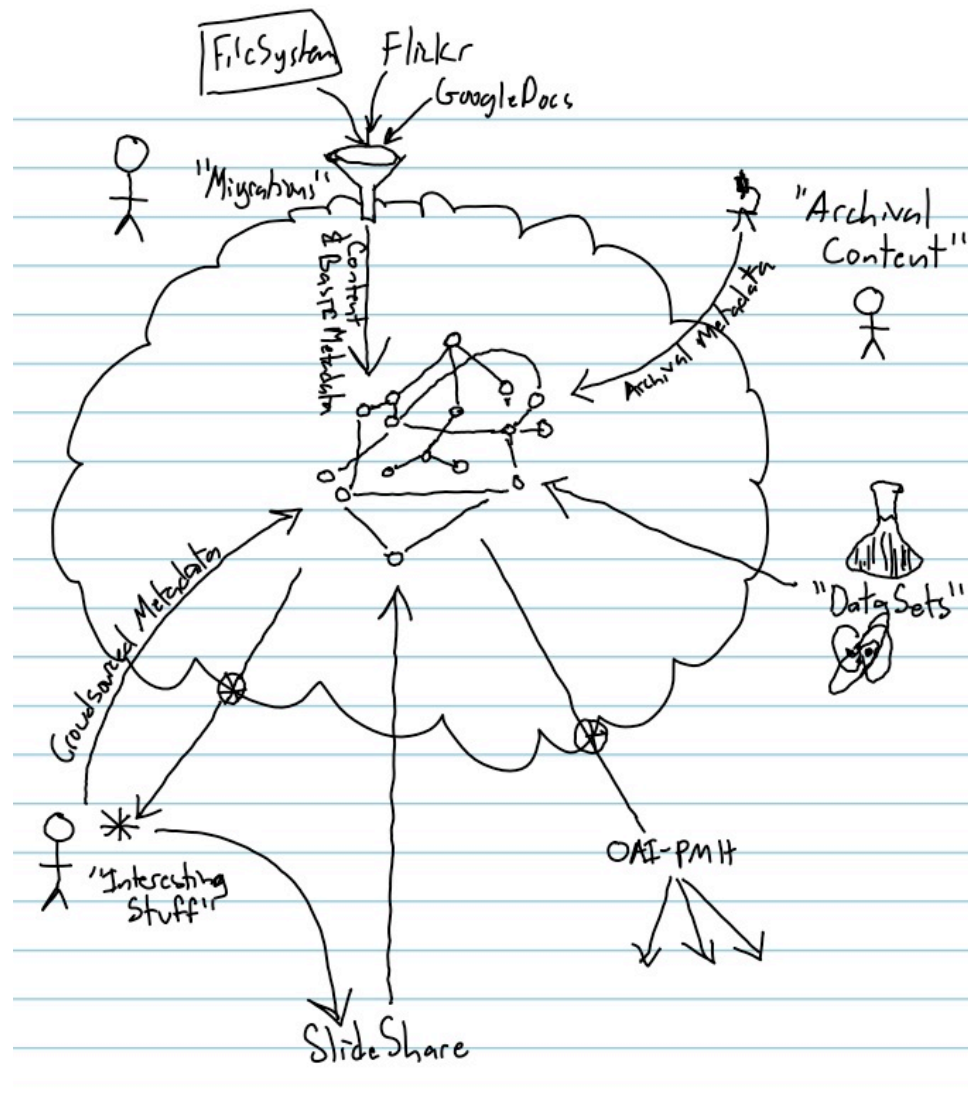 FileSystem
Flickr
GoogleDocs
"Migrations"
Content
& Basic Metadata
"Archival
Content"
Archival Metadata
"DataSets"
Crowdsourced Metadata
"Interesting
Stuff"
OAI-PMH
SlideShare